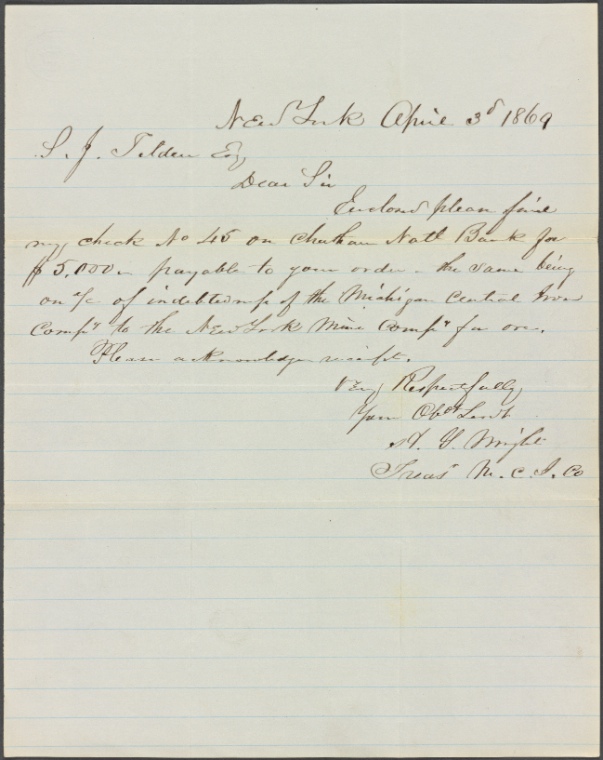 New York April 3d 1869
S. J. Tilden Esq
Dear Sir
Enclosed please find
my check No 45 on Chatham Natl Bank for
$5,000 — payable to your order — the same being
on a/c of indebtedness of the Michigan Central Iron
Compy to the New York Mine Compy for ore.
Please acknowledge receipt.
Very Respectfully
Your Obdt Servt
Wright
Treas M. C. I. Co